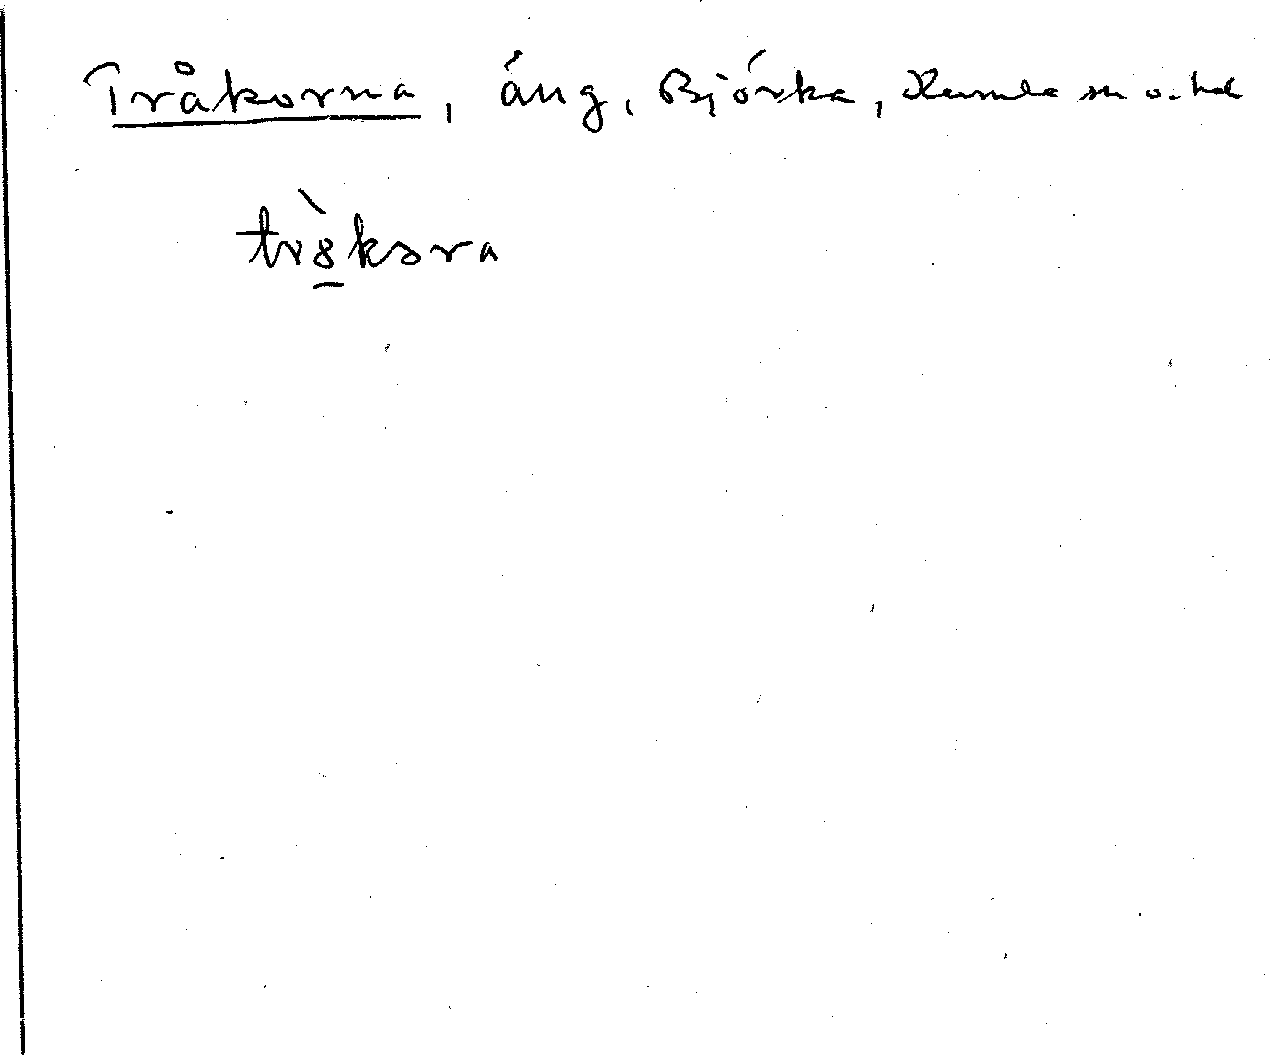 Tråkorna, äng, Björka, Kumla sn o. hd
tr8̠̀kәra